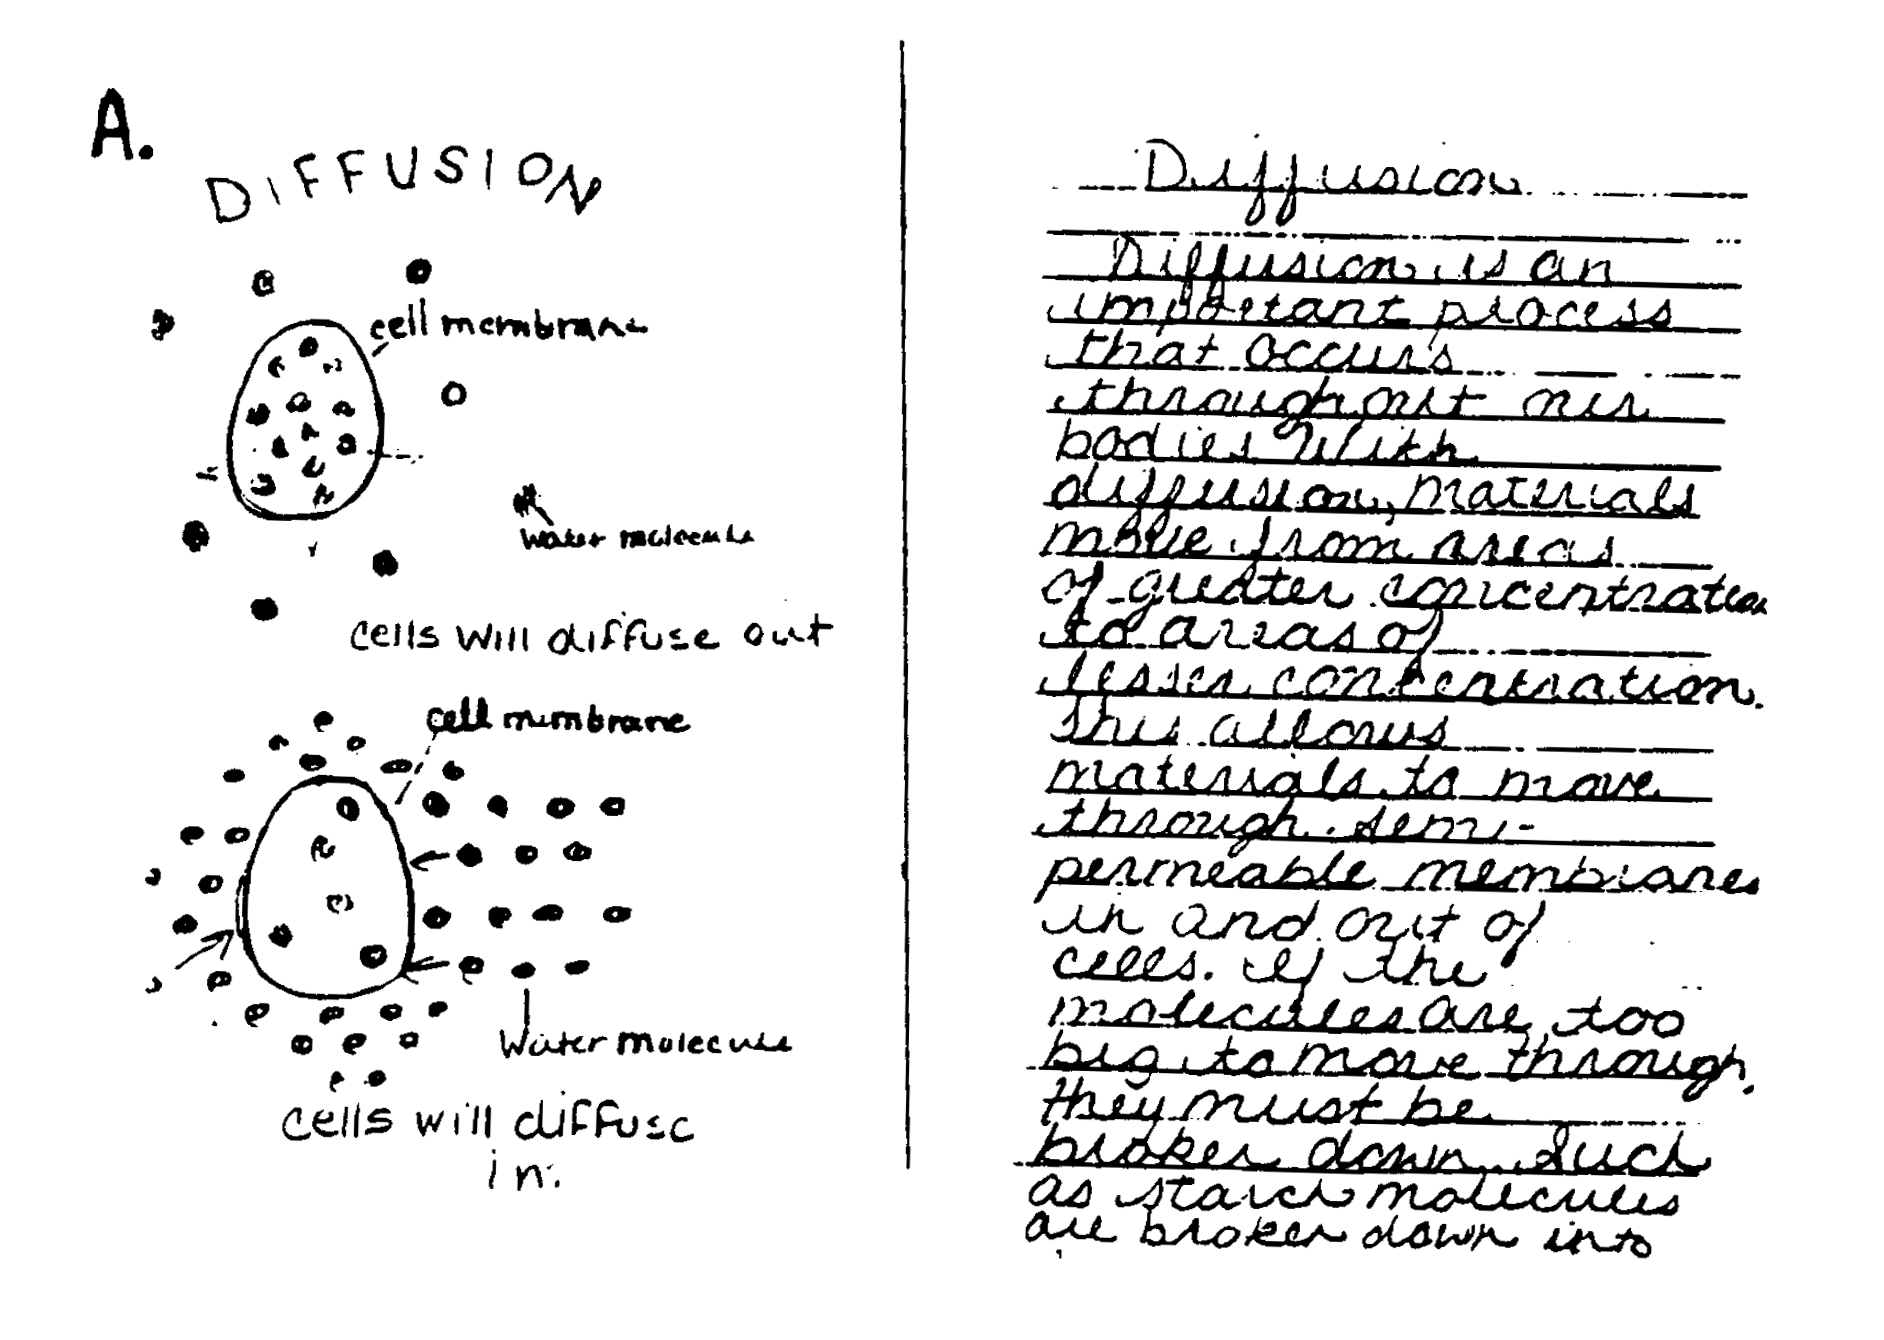 A.
DIFFUSION
cell membrane
water molecule
cells will diffuse out
cell membrane
Water molecule
cells will diffuse
in.
Diffusion
Diffusion is an
important process
that occurs
throughout our
bodies With
diffusion, materials
move from areas
of greater concentration
to areas of
lesser concentration.
This allows
materials to move
through semi-
permeable membranes
in and out of
cells. If the
molecules are too
big to move through,
they must be
broken down. Such
as starch molecules
are broken down into